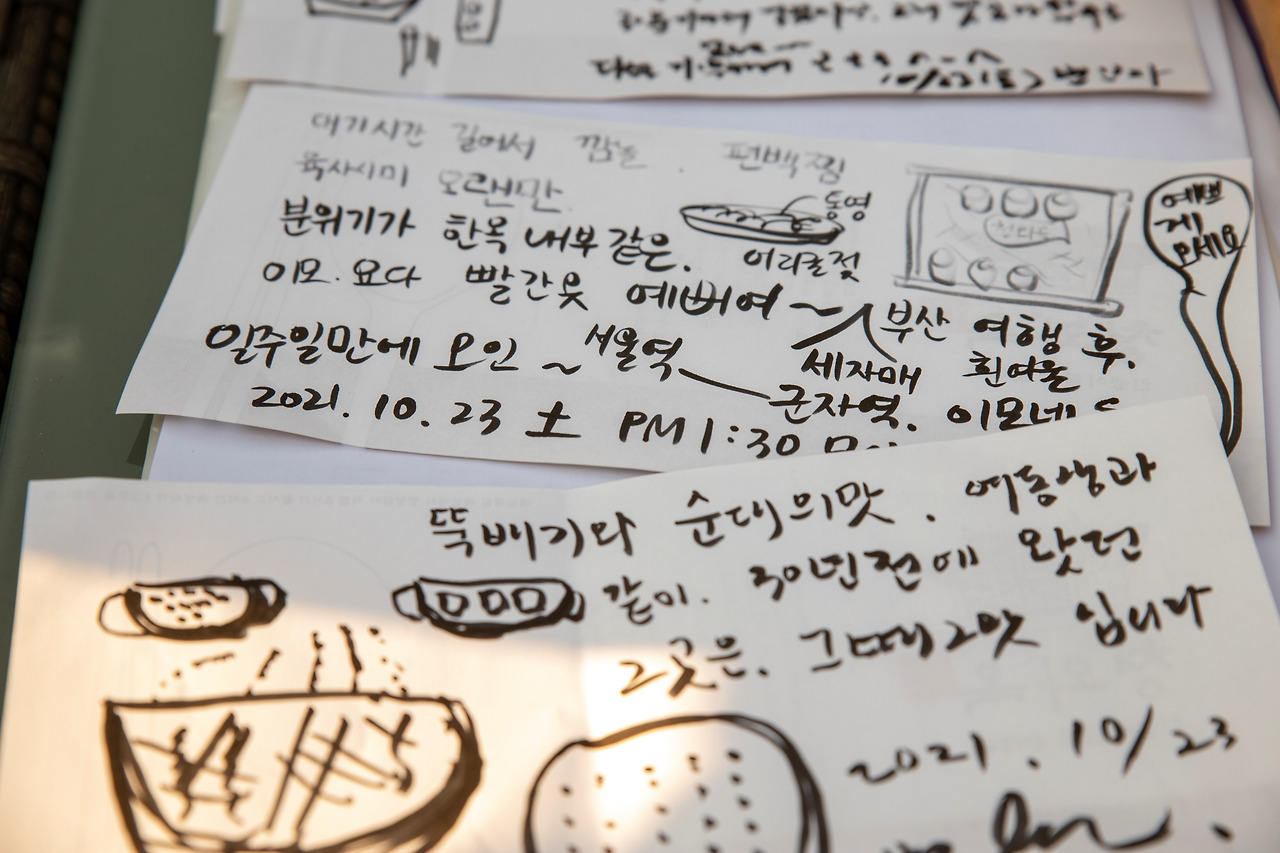 10/23(토)
대기시간 길어서 깜놀. 편백찜
육사시미 오랜만.
통영
어리굴젓
분위기가 한옥 내부 같은.
이모.요다 빨간옷 예뻐여~
부산 여행 후.
세자매 흰여울
일주일만에 오인~서울역
군자역. 이모네
2021. 10. 23 土 PM 1:30
예쁘
게
만세요
뚝배기와 순대의맛. 여동생과
같이. 30년전에 왔던
그곳은. 그때그맛 입니다
2021. 10/23